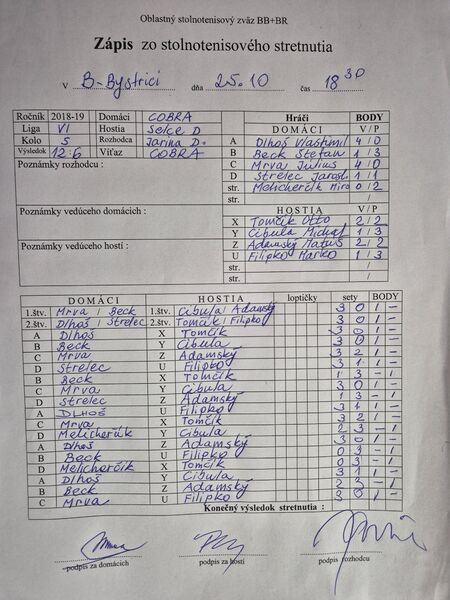 Oblastný stolnotenisový zväz BB+BR
Zápis zo stolnotenisového stretnutia
V B-Bystrici dňa 25.10 čas 18 30
Ročník 2018-19 Domáci COBRA
Liga VI Hostia Selce D
Kolo 5 Rozhodca Jarina D.
Výsledok 12:6 Víťaz COBRA
Poznámky rozhodcu :
Poznámky vedúceho domácich :
Poznámky vedúceho hostí :
Hráči BODY
DOMÁCI V / P
A Dlhoš Vlastimil 4 / 0
B Beck Štefan 1 / 3
C Mrva Július 4 / 0
D Strelec Jarosl 1 / 1
str. Melicherčík Miro 0 / 2
HOSTIA V / P
X Tomčík Otto 2 / 2
Y Cibula Michal 1 / 3
Z Adamský Matúš 2 / 2
U Filipko Marko 1 / 3
str. /
str. /
DOMÁCI HOSTIA loptičky sety BODY
1.štv. Mrva / Beck 1.štv. Cibula / Adamský 3 0 1 -
2.štv. Dlhoš / Strelec 2.štv. Tomčík / Filipko 3 0 1 -
A Dlhoš X Tomčík 3 0 1 -
B Beck Y Cibula 3 0 1 -
C Mrva Z Adamský 3 2 1 -
D Strelec U Filipko 3 1 1 -
B Beck X Tomčík 1 3 - 1
C Mrva Y Cibula 3 0 1 -
D Strelec Z Adamský 1 3 - 1
A DLHOŠ U Filipko 3 1 1 -
C Mrva X Tomčík 3 2 1 -
D Melicherčík Y Cibula 2 3 - 1
A Dlhoš Z Adamský 3 0 1 -
B Beck U Filipko 0 3 - 1
D Melicherčík X Tomčík 0 3 - 1
A Dlhoš Y Cibula 3 1 1 -
B Beck Z Adamský 2 3 - 1
C Mrva U Filipko 3 0 1 -
Konečný výsledok stretnutia :
podpis za domácich podpis za hostí podpis rozhodcu